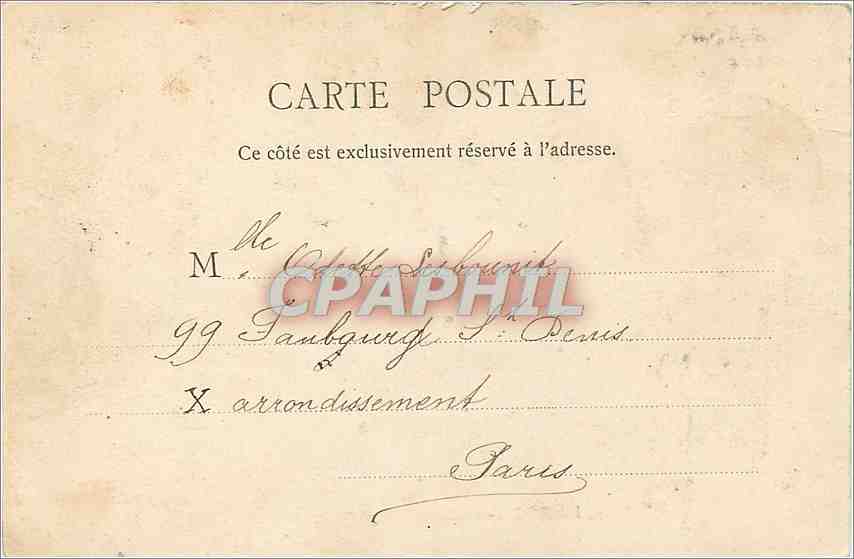 CARTE POSTALE
Ce côté est exclusivement réservé à l'adresse.
Mlle Odette Lesbounit
CPAPHIL
99 Faubgurg St Denis
X arrondissement
Paris